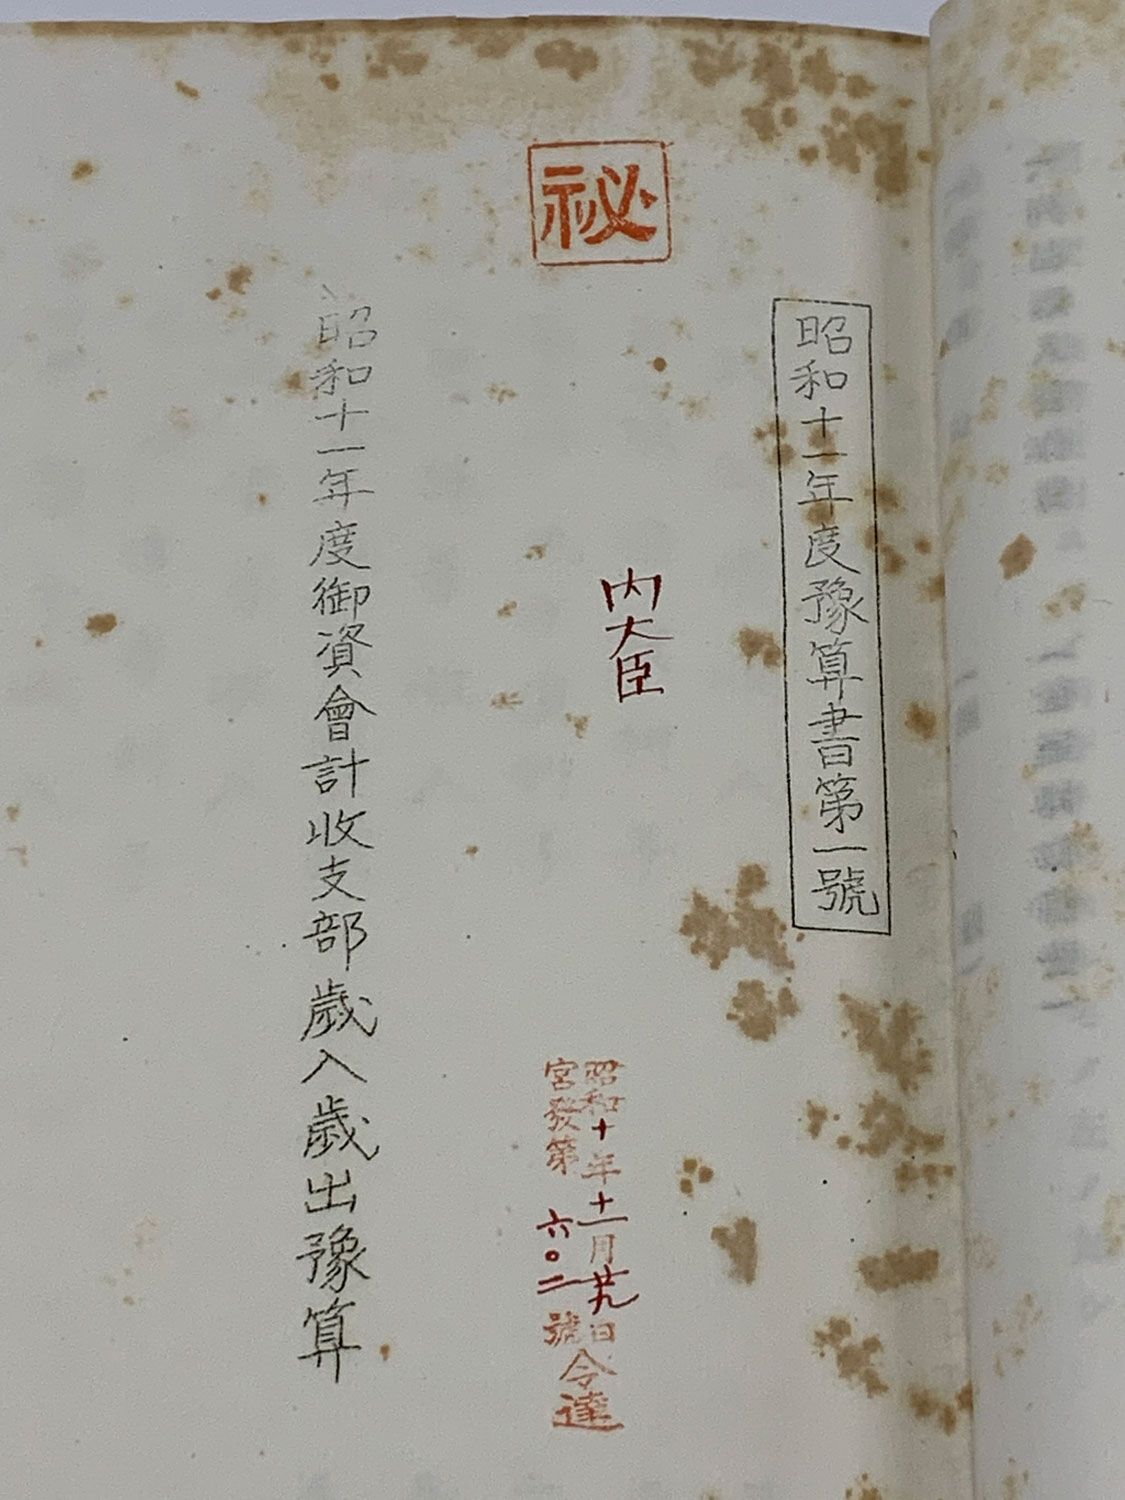 祕
昭和十一年度豫算書第一號
内大臣
昭和十年十一月廿九日
宮發第六〇二號
令達
昭和十一年度御資會計收支部歳入歳出豫算